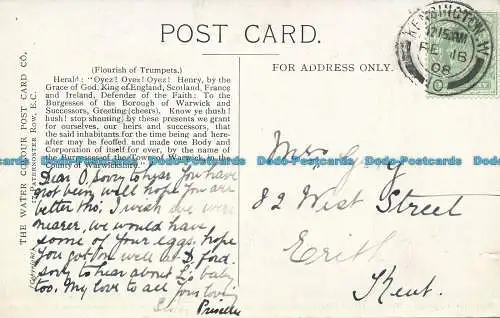 POST CARD.
(Flourish of Trumpets.)
Herald: "Oyez! Oyez! Oyez! Henry, by the
Grace of God, King of England, Scotland, France
and Ireland, Defender of the Faith: To the
Burgesses of the Borough of Warwick and
Successors, Greeting (cheers). Know ye (hush!
hush! stop shouting) by these presents we grant
for ourselves, our heirs and successors, that
the said inhabitants for the time being and here-
after may be feoffed and made one Body and
Corporation of itself for ever, by the name of
the Burgesses of the Town of Warwick, in the
County of Warwickshire."
THE WATER COLOUR POST CARD CO.
17 PATERNOSTER ROW, E.C.
(Copyright)
FOR ADDRESS ONLY.
KENSINGTON. W
12.15 AM
FE 18
08
Dear O Sorry to hear you have
not been well hope you are
better tho'. I wish we were
nearer, we would have
some of your eggs. hope
you got on well at D. ford.
sorry to hear about L's baby
too. My love to all
your loving
Priscilla
Mrs
82 West Street
Erith
Kent.
Dodo-Postcards Dodo-Postcards Dodo-Postcards Dodo-Postcards Dodo-Postcards